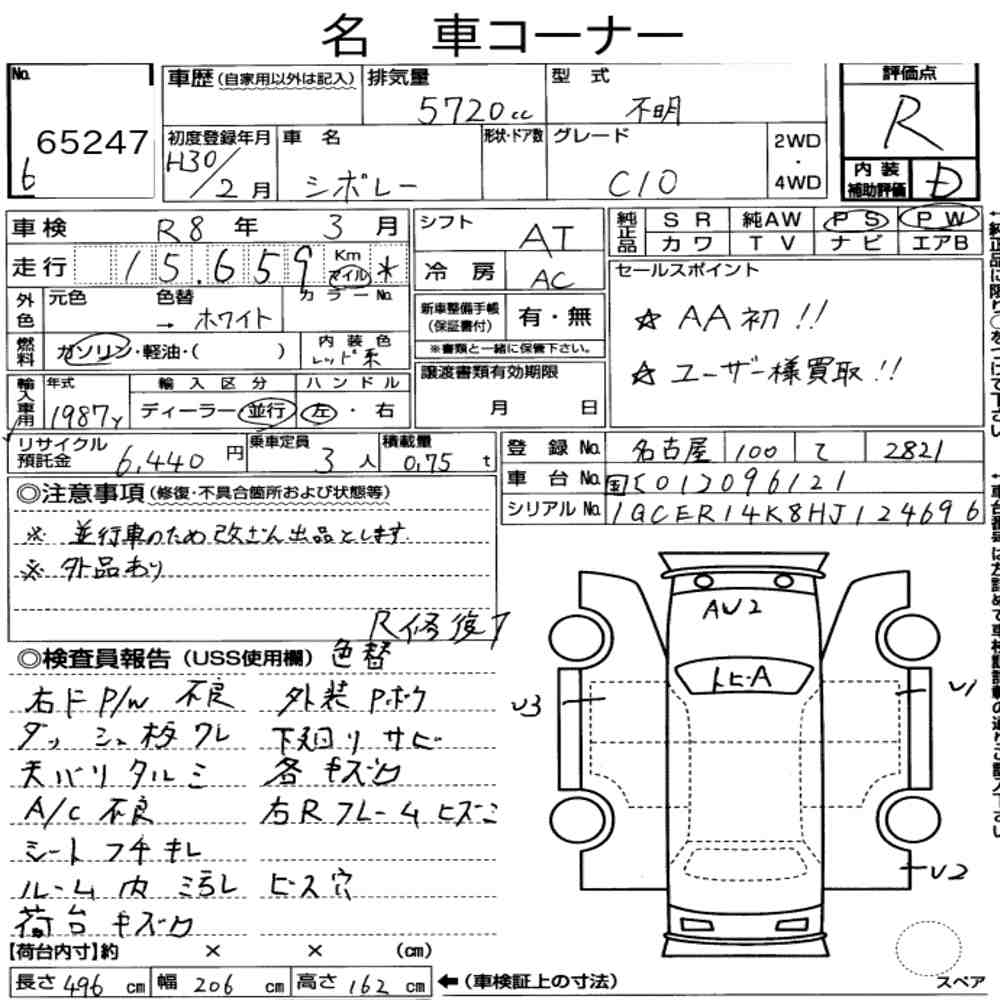 名 車コーナー
No. 65247
6
車歴 (自家用以外は記入)
排気量 5720cc
型式 不明
評価点 R
初度登録年月 H30/2月
車名 シボレー
形状・ドア数
グレード C10
2WD・4WD
内装補助評価 D
車検 R8年 3月
シフト AT
純正品 SR 純AW PS PW
カワ TV ナビ エアB
走行 15,659 Km マイル *
冷房 AC
セールスポイント
☆ AA初!!
☆ ユーザー様買取!!
外色 元色 色替 → ホワイト カラーNo.
新車整備手帳(保証書付) 有・無
※書類と一緒に保管下さい。
燃料 ガソリン・軽油・( )
内装色 レッド系
譲渡書類有効期限
月 日
輸入車用 年式 1987y
輸入区分 ディーラー・並行
ハンドル 左・右
リサイクル預託金 6,440円
乗車定員 3人
積載量 0.75t
登録No. 名古屋 100 て 2821
車台No. 国[01]096121
シリアルNo. 1GCER14K8HJ124696
◎注意事項 (修復・不具合箇所および状態等)
※ 並行車のため改ざん出品とします.
※ 外品あり
R修復
◎検査員報告 (USS使用欄) 色替
右ドP/W 不良 外装Pボケ
ダッシュ板ワレ 下廻りサビ
天バリタルミ 各キズ凹
A/C 不良 右Rフレームヒズミ
シートフチキレ
ルーム内汚れ ビス穴
荷台キズ凹
AU2
トビ・A
U3
U1
U2
【荷台内寸】約 × × (cm)
長さ 496 cm 幅 206 cm 高さ 162 cm ←(車検証上の寸法)
スペア